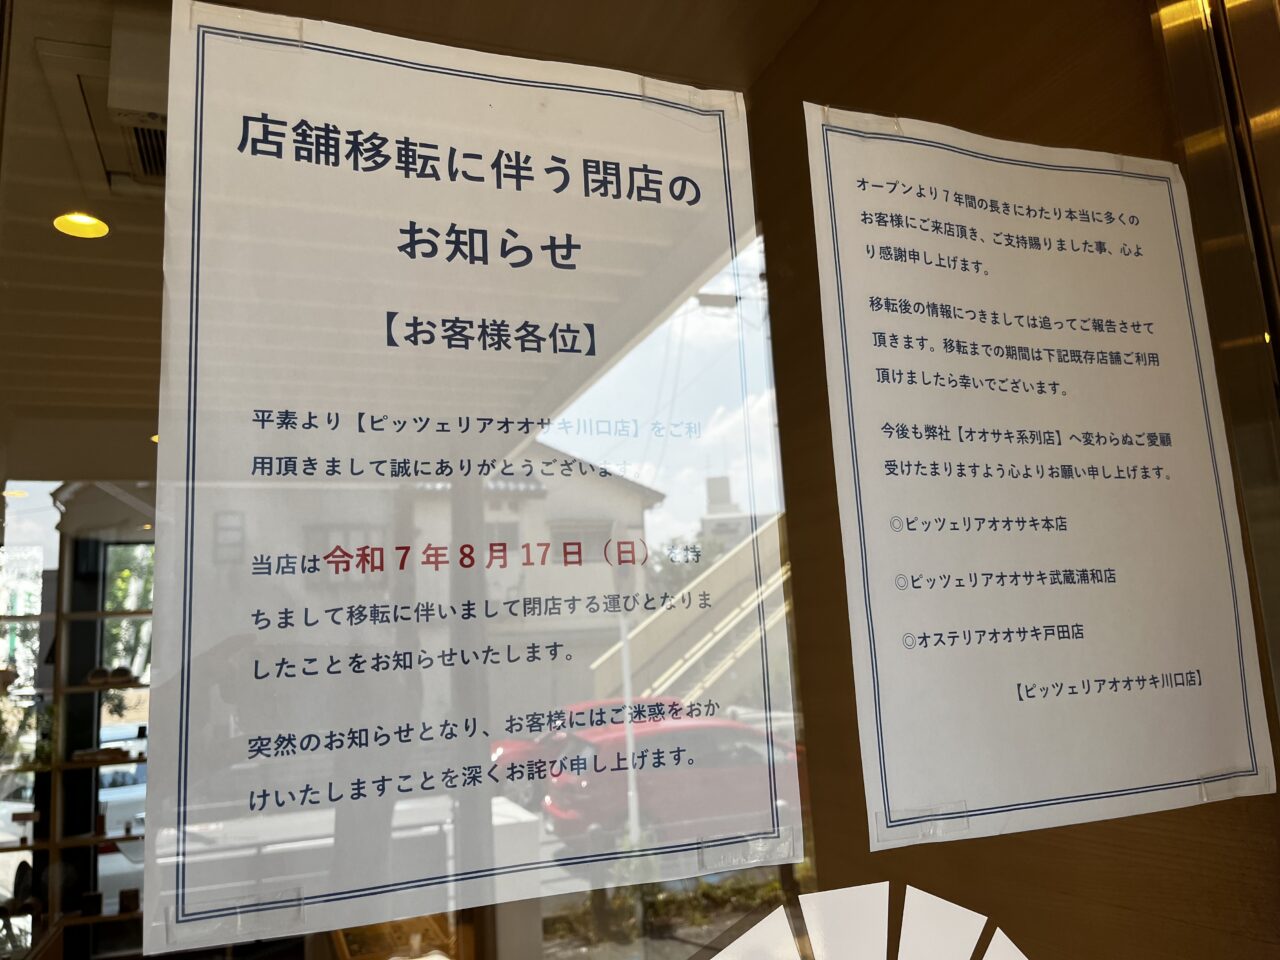 店舗移転に伴う閉店の
お知らせ
【お客様各位】
平素より【ピッツェリアオオサキ川口店】をご利
用頂きまして誠にありがとうございます。
当店は令和7年8月17日（日）を持
ちまして移転に伴いまして閉店する運びとなりま
したことをお知らせいたします。
突然のお知らせとなり、お客様にはご迷惑をおか
けいたしますことを深くお詫び申し上げます。
オープンより7年間の長きにわたり本当に多くの
お客様にご来店頂き、ご支持賜りました事、心よ
り感謝申し上げます。
移転後の情報につきましては追ってご報告させて
頂きます。移転までの期間は下記既存店舗ご利用
頂けましたら幸いでございます。
今後も弊社【オオサキ系列店】へ変わらぬご愛顧
受けたまりますよう心よりお願い申し上げます。
◎ピッツェリアオオサキ本店
◎ピッツェリアオオサキ武蔵浦和店
◎オステリアオオサキ戸田店
【ピッツェリアオオサキ川口店】